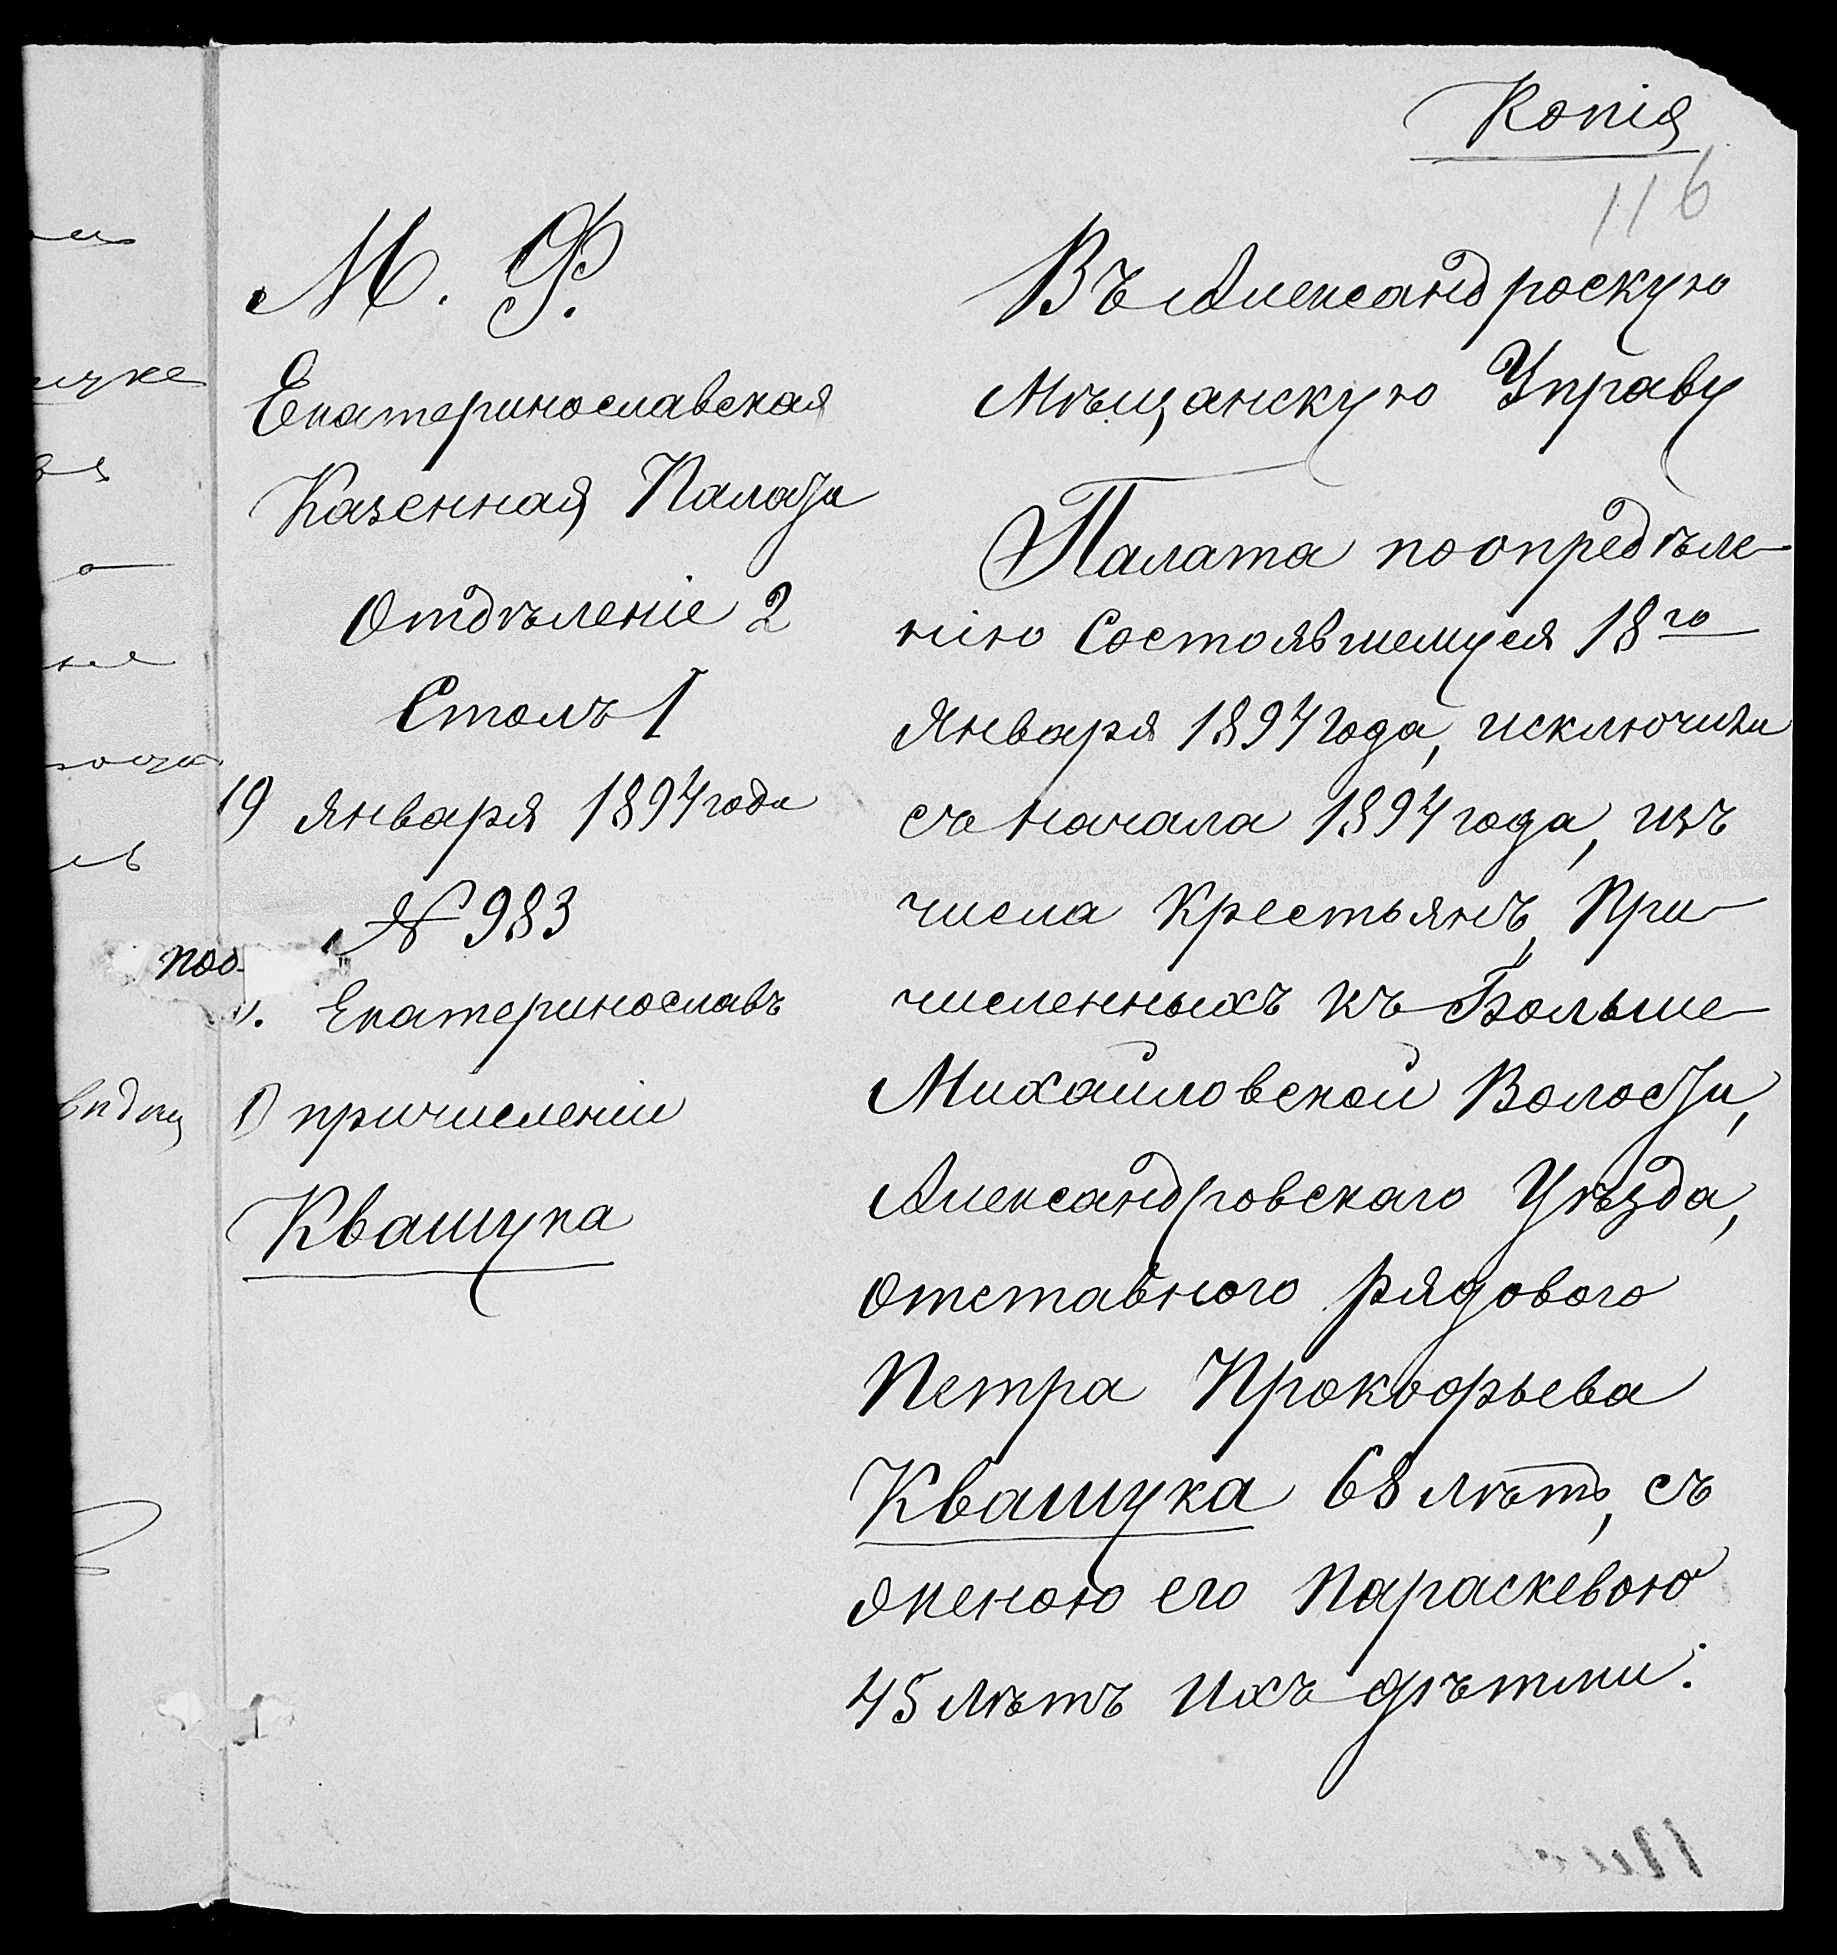 Копія
116
М. Ф.
Екатеринославская
Казенная Палата
Отдѣленіе 2
Столъ 1
19 Января 1894 года
№ 983
г. Екатеринославъ
О причисленіи
Квашука
Въ Александроскую
Мѣщанскую Управу
Палата по опредѣле-
нію Состоявшемуся 18го
Января 1894 года, исключила
съ начала 1894 года, изъ
числа Крестьянъ, При-
численныхъ къ Больше-
Михайловской Волости,
Александровскаго Уѣзда,
отставного рядового
Петра Прокофьева
Квашука 68 лѣтъ, съ
женою его Параскевою
45 лѣтъ ихъ дѣтми: